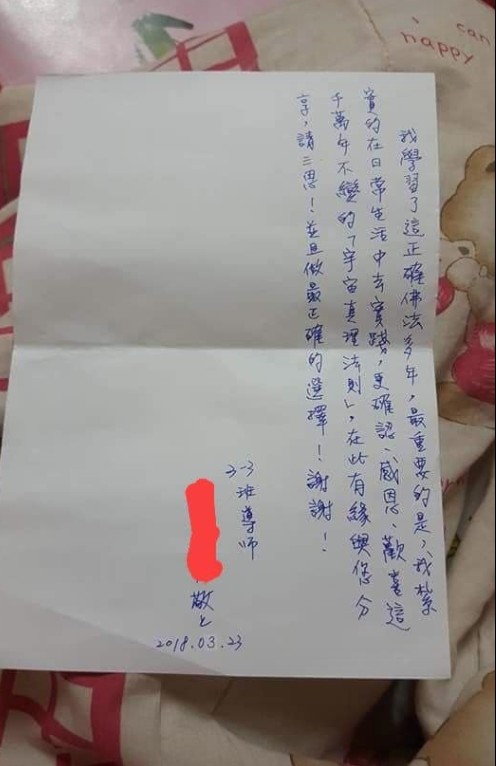 我學習了這正確佛法多年，最重要的是，我紮
實的在日常生活中去實踐，更確認、感恩、歡喜這
千萬年不變的「宇宙真理法則」，在此有緣與您分
享，請三思！並且做最正確的選擇！謝謝！
3-3班導師
敬上
2018.03.23
can
happy